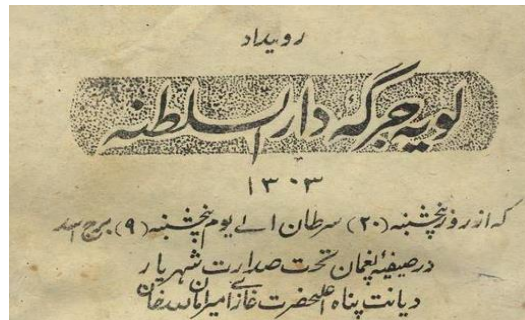 رویداد
لویه جرگه دارالسلطنه
۱۳۰۳
که از روز پنجشنبه (۲۰) سرطان الی یوم پنجشنبه (۹) برج اسد
در صیفیهٔ پغمان تحت صدارت شهریار
دیانت پناه اعلیحضرت غازی امیر امان الله خان